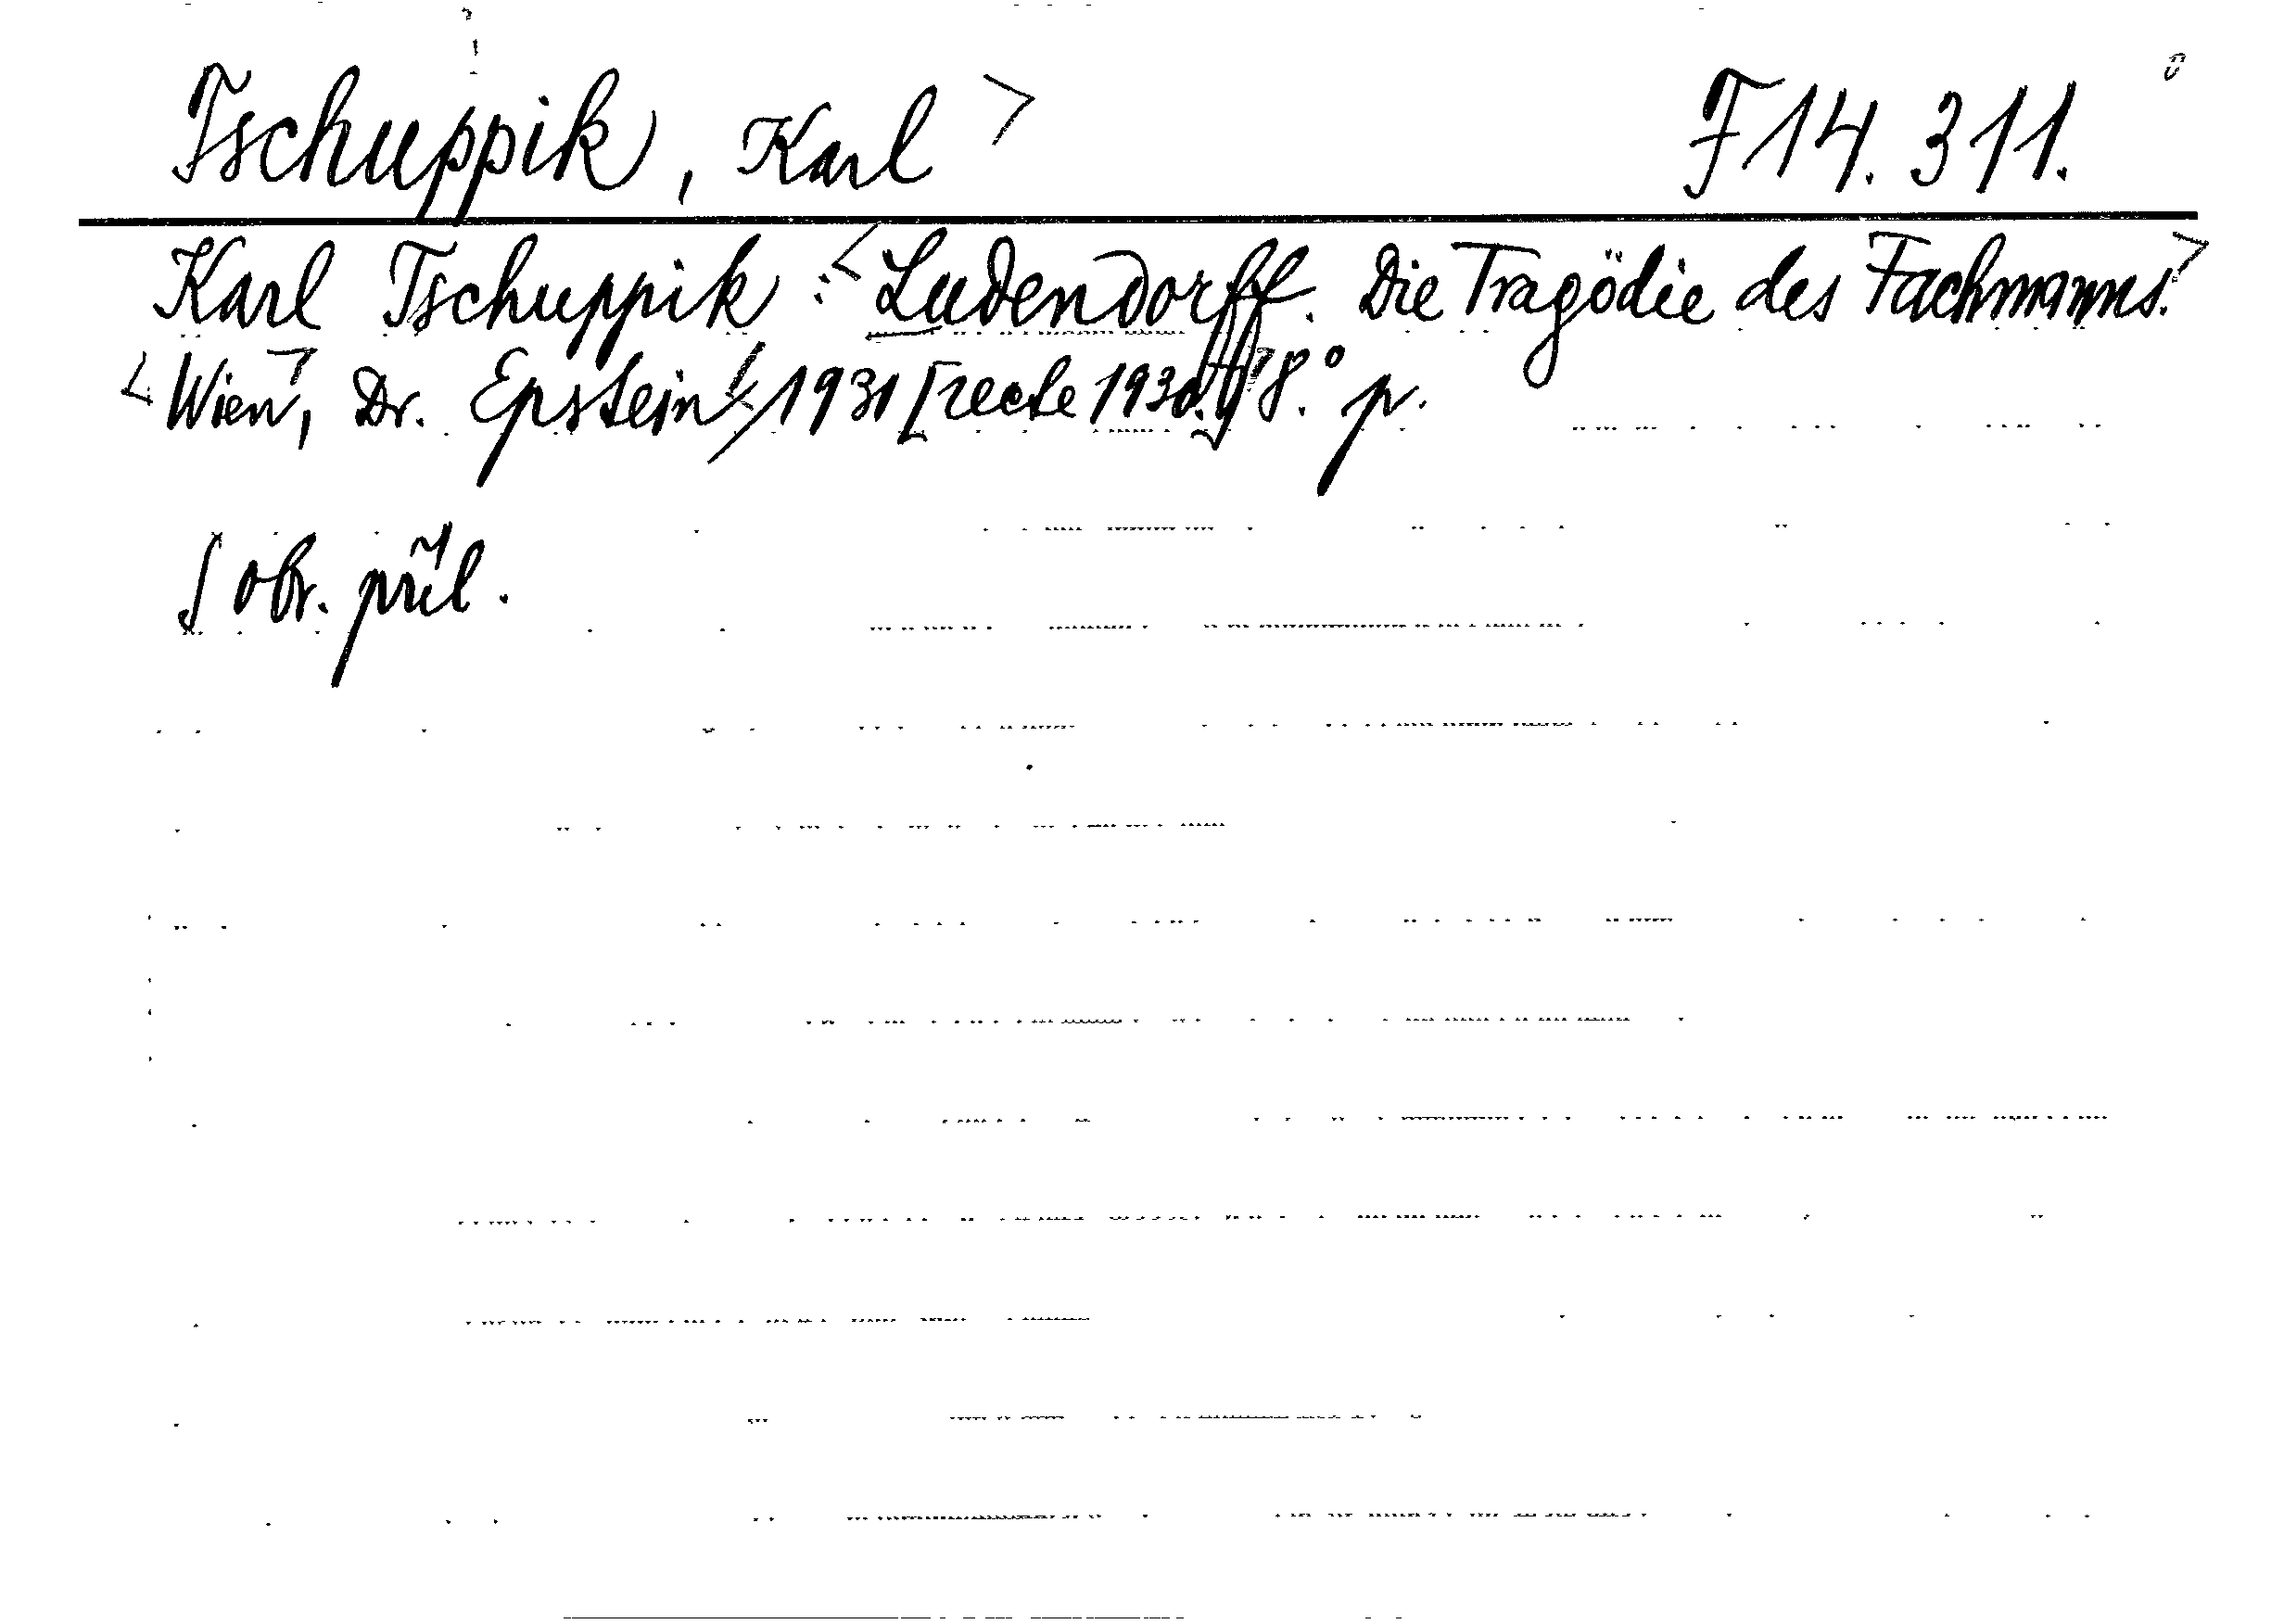 Tschuppik, Karl> F 14.311.
Karl Tschuppik : <Ludendorff. Die Tragödie des Fachmanns.>
<Wien>, Dr. Epstein 1931 [recte 1930.] 8.° p.
S obr. příl.